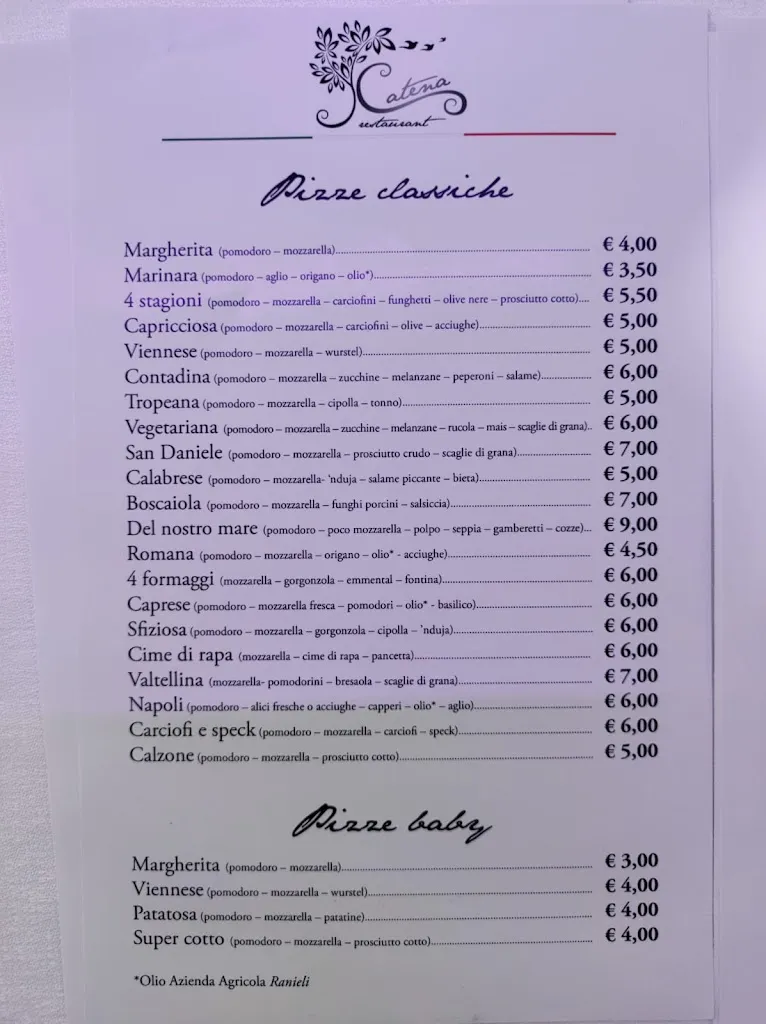 Catena
restaurant
Pizze classiche
Margherita (pomodoro – mozzarella) € 4,00
Marinara (pomodoro – aglio – origano – olio*) € 3,50
4 stagioni (pomodoro – mozzarella – carciofini – funghetti – olive nere – prosciutto cotto) € 5,50
Capricciosa (pomodoro – mozzarella – carciofini – olive – acciughe) € 5,00
Viennese (pomodoro – mozzarella – wurstel) € 5,00
Contadina (pomodoro – mozzarella – zucchine – melanzane – peperoni – salame) € 6,00
Tropeana (pomodoro – mozzarella – cipolla – tonno) € 5,00
Vegetariana (pomodoro – mozzarella – zucchine – melanzane – rucola – mais – scaglie di grana) € 6,00
San Daniele (pomodoro – mozzarella – prosciutto crudo – scaglie di grana) € 7,00
Calabrese (pomodoro – mozzarella- 'nduja – salame piccante – bieta) € 5,00
Boscaiola (pomodoro – mozzarella – funghi porcini – salsiccia) € 7,00
Del nostro mare (pomodoro – poco mozzarella – polpo – seppia – gamberetti – cozze) € 9,00
Romana (pomodoro – mozzarella – origano – olio* - acciughe) € 4,50
4 formaggi (mozzarella – gorgonzola – emmental – fontina) € 6,00
Caprese (pomodoro – mozzarella fresca – pomodori – olio* - basilico) € 6,00
Sfiziosa (pomodoro – mozzarella – gorgonzola – cipolla – 'nduja) € 6,00
Cime di rapa (mozzarella – cime di rapa – pancetta) € 6,00
Valtellina (mozzarella- pomodorini – bresaola – scaglie di grana) € 7,00
Napoli (pomodoro – alici fresche o acciughe – capperi – olio* – aglio) € 6,00
Carciofi e speck (pomodoro – mozzarella – carciofi – speck) € 6,00
Calzone (pomodoro – mozzarella – prosciutto cotto) € 5,00
Pizze baby
Margherita (pomodoro – mozzarella) € 3,00
Viennese (pomodoro – mozzarella – wurstel) € 4,00
Patatosa (pomodoro – mozzarella – patatine) € 4,00
Super cotto (pomodoro – mozzarella – prosciutto cotto) € 4,00
*Olio Azienda Agricola Ranieli